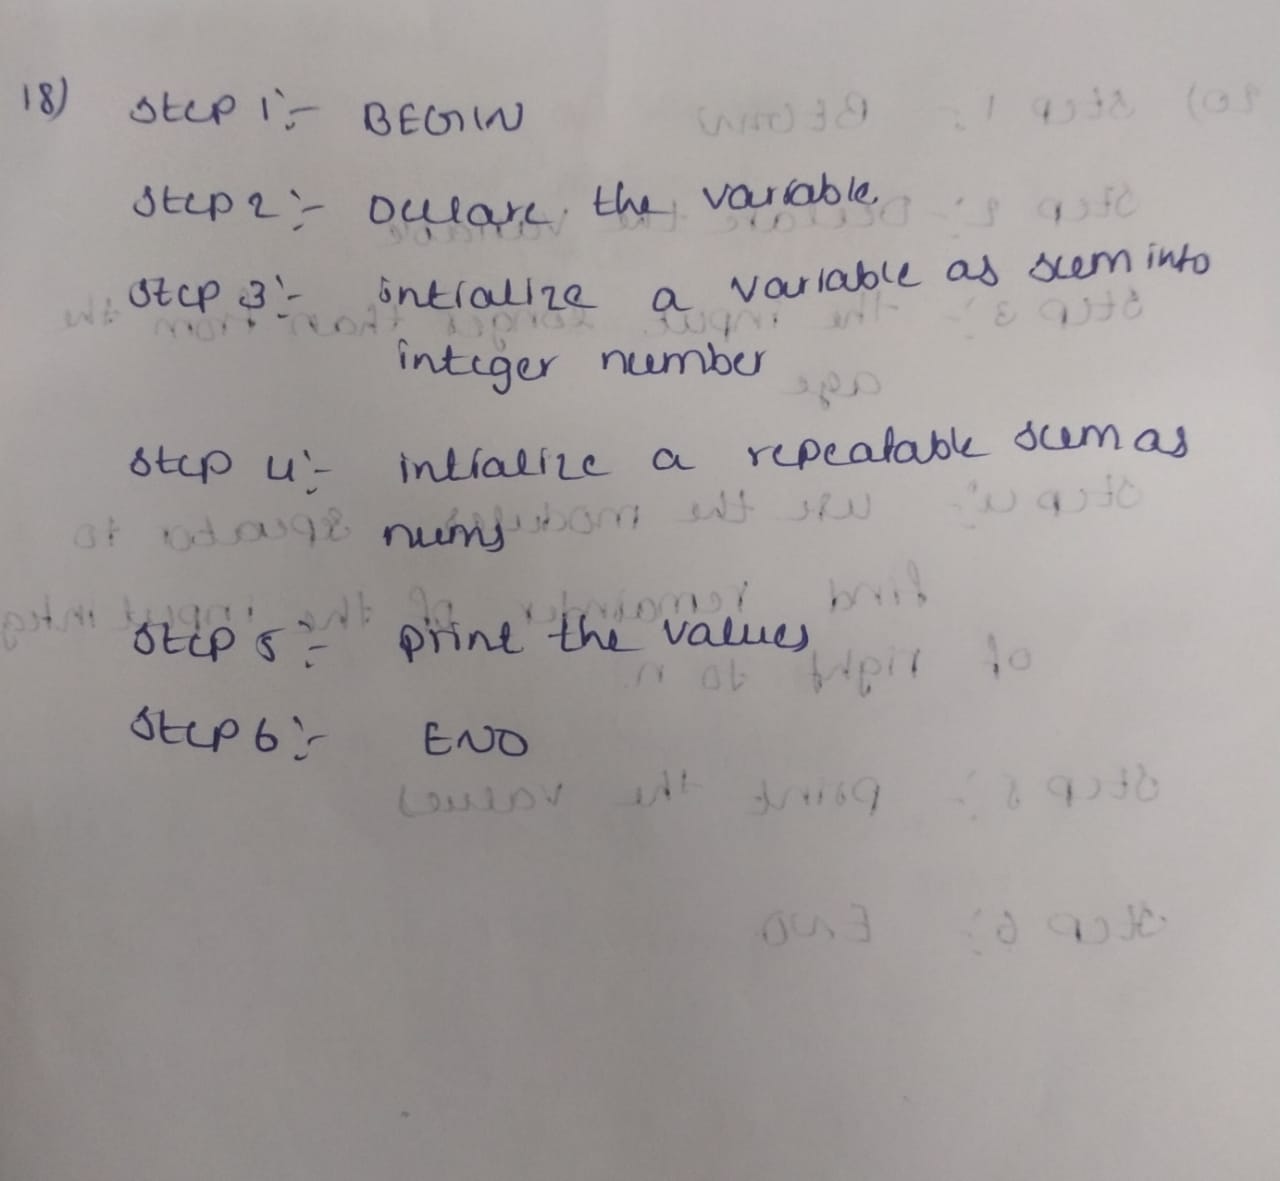 18) Step 1:- BEGIN
Step 2:- Declare the variable
Step 3:- intialize a variable as sum into
integer number
Step 4:- intialize a repeatable sum as
nums
Step 5:- print the values
Step 6:- END